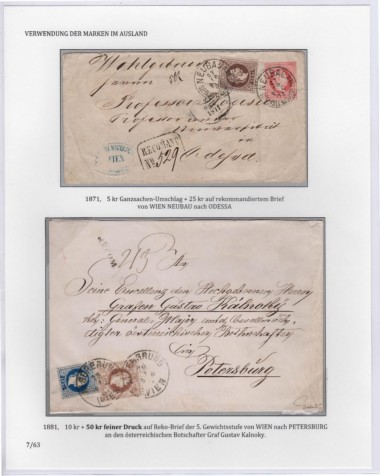 VERWENDUNG DER MARKEN IM AUSLAND
Wohlgeboren
Herrn
Professor
Professor an der
Universität
in Odessa
NEUBAU
WIEN
NEUBAU
WIEN
RECOMAND
No 529
WIEN
1871, 5 kr Ganzsachen-Umschlag + 25 kr auf rekommandiertem Brief
von WIEN NEUBAU nach ODESSA
An
Seine Excellenz den Hochgebornen Herrn
Grafen Gustav Kálnoky
General Major
österreichischen Botschafter
in
Petersburg
WIEN
1881, 10 kr + 50 kr feiner Druck auf Reko-Brief der 5. Gewichtsstufe von WIEN nach PETERSBURG
an den österreichischen Botschafter Graf Gustav Kalnoky.
7/63